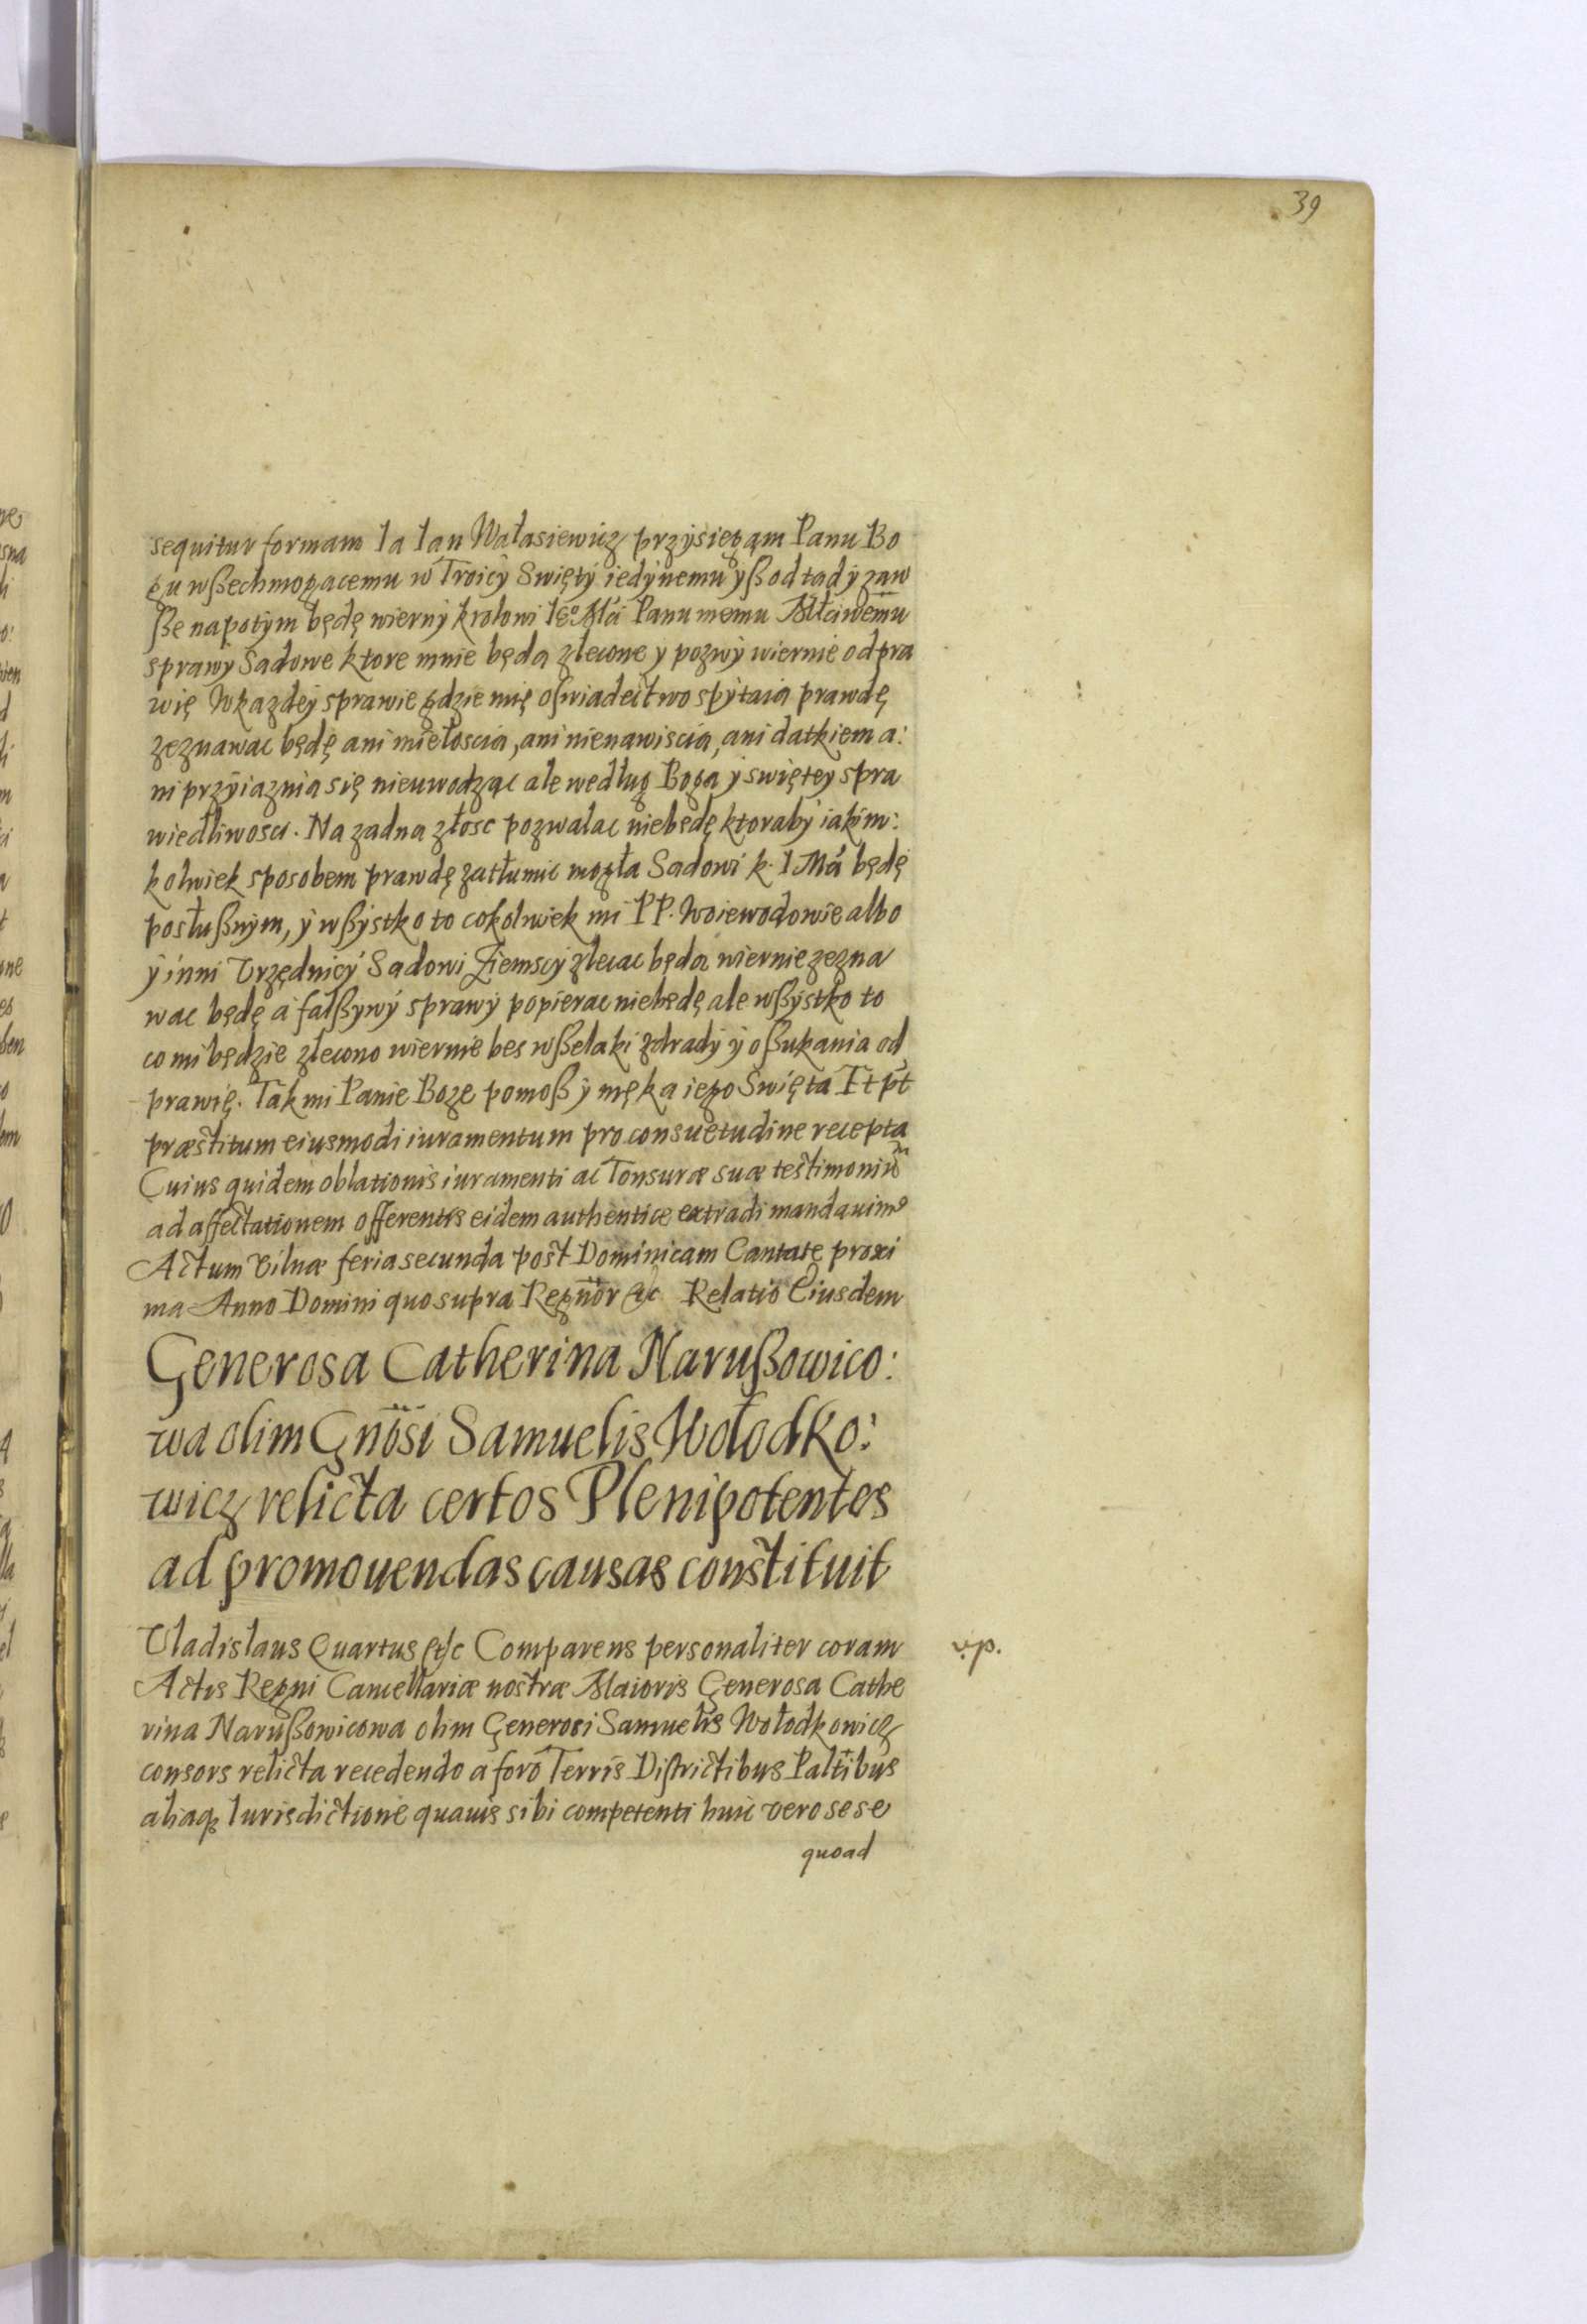 39
sequitur formam Ia Ian Wałasiewicz przysięgam Panu Bo
gu wßechmogącemu w Troicy Swięty iedynemu yß od tad y zaw
ße napotym będę wierny krolowi Ieº Mći Panu memu Młciwemu
sprawy Sadowe ktore mnie będa zlecone y pozwy wiernie odpra
wię W kazdey sprawie gdzie mię oswiadectwo spytaia prawdę
zeznawac będę ani miełoscia, ani nienawiscia, ani datkiem a:
ni przyiaznia się nieuwodząc ale według Boga y swiętey spra
wiedliwosci. Na zadna złosc pozwalac niebędę ktoraby iakim:
kolwiek sposobem prawdę zatłumic mogła Sadowi k. I Mći będę
posłußnym, y wßystko to cokolwiek mi PP. Woiewodowie albo
y inni Vrzędnicy Sadowi Ziemscy zlecac będa wiernie zezna
wac będę a falßywy sprawy popierac niebędę ale wßystko to
co mi będzie zlecono wiernie bes wßelaki zdrady y oßukania od
prawię. Tak mi Panie Boze pomoß y męka iego Swięta Et pt
præstitum eiusmodi iuramentum pro consuetudine recepta
Cuius quidem oblationis iuramenti ac Tonsuræ suæ testimoniũm
ad affectationem offerentis eidem authentice extradi mandauimꝰ
Actum Vilnæ feria secunda post Dominicam Cantate proxi
ma Anno Domini quo supra Regnor̃ &c Relatio Eiusdem
Generosa Catherina Narußowico:
wa olim Gnõsi Samuelis Wołodko:
wicz relicta certos Plenipotentes
ad promouendas causas constituit
Vladislaus Quartus &c Comparens personaliter coram
v.p.
Actis Regni Cancellariæ nostræ Maioris Generosa Cathe
rina Narußowicowa olim Generosi Samuelis Wołodkowicz
consors relicta recedendo a foro Terris Districtibus Paltibus
aliaqꝫ Iurisdictione quauis sibi competenti huic vero sese
quoad